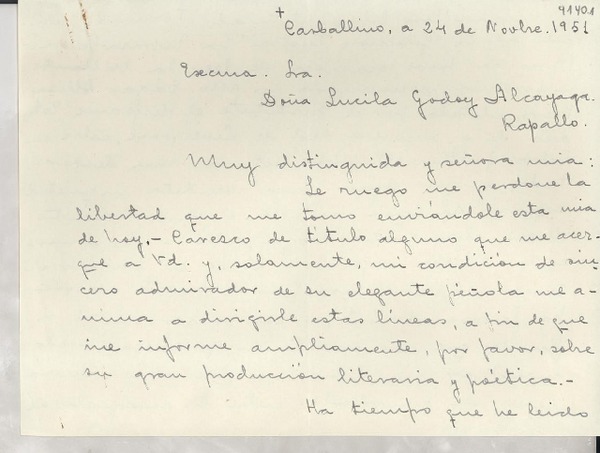 91401
+
Carballino, a 24 de Novbre. 1951
Excma. Sra.
Doña Lucila Godoy Alcayaga.
Rapallo.
Muy distinguida y señora mia:
Le ruego me perdone la
libertad que me tomo enviándole esta mia
de hoy.- Caresco de titulo alguno que me acer-
que a Vd. y, solamente, mi condición de sin-
cero admirador de su elegante péñola me a-
nima a dirigirle estas líneas, a fin de que
me informe ampliamente, por favor, sobre
su gran producción literaria y poética.-
Ha tiempo que he leido